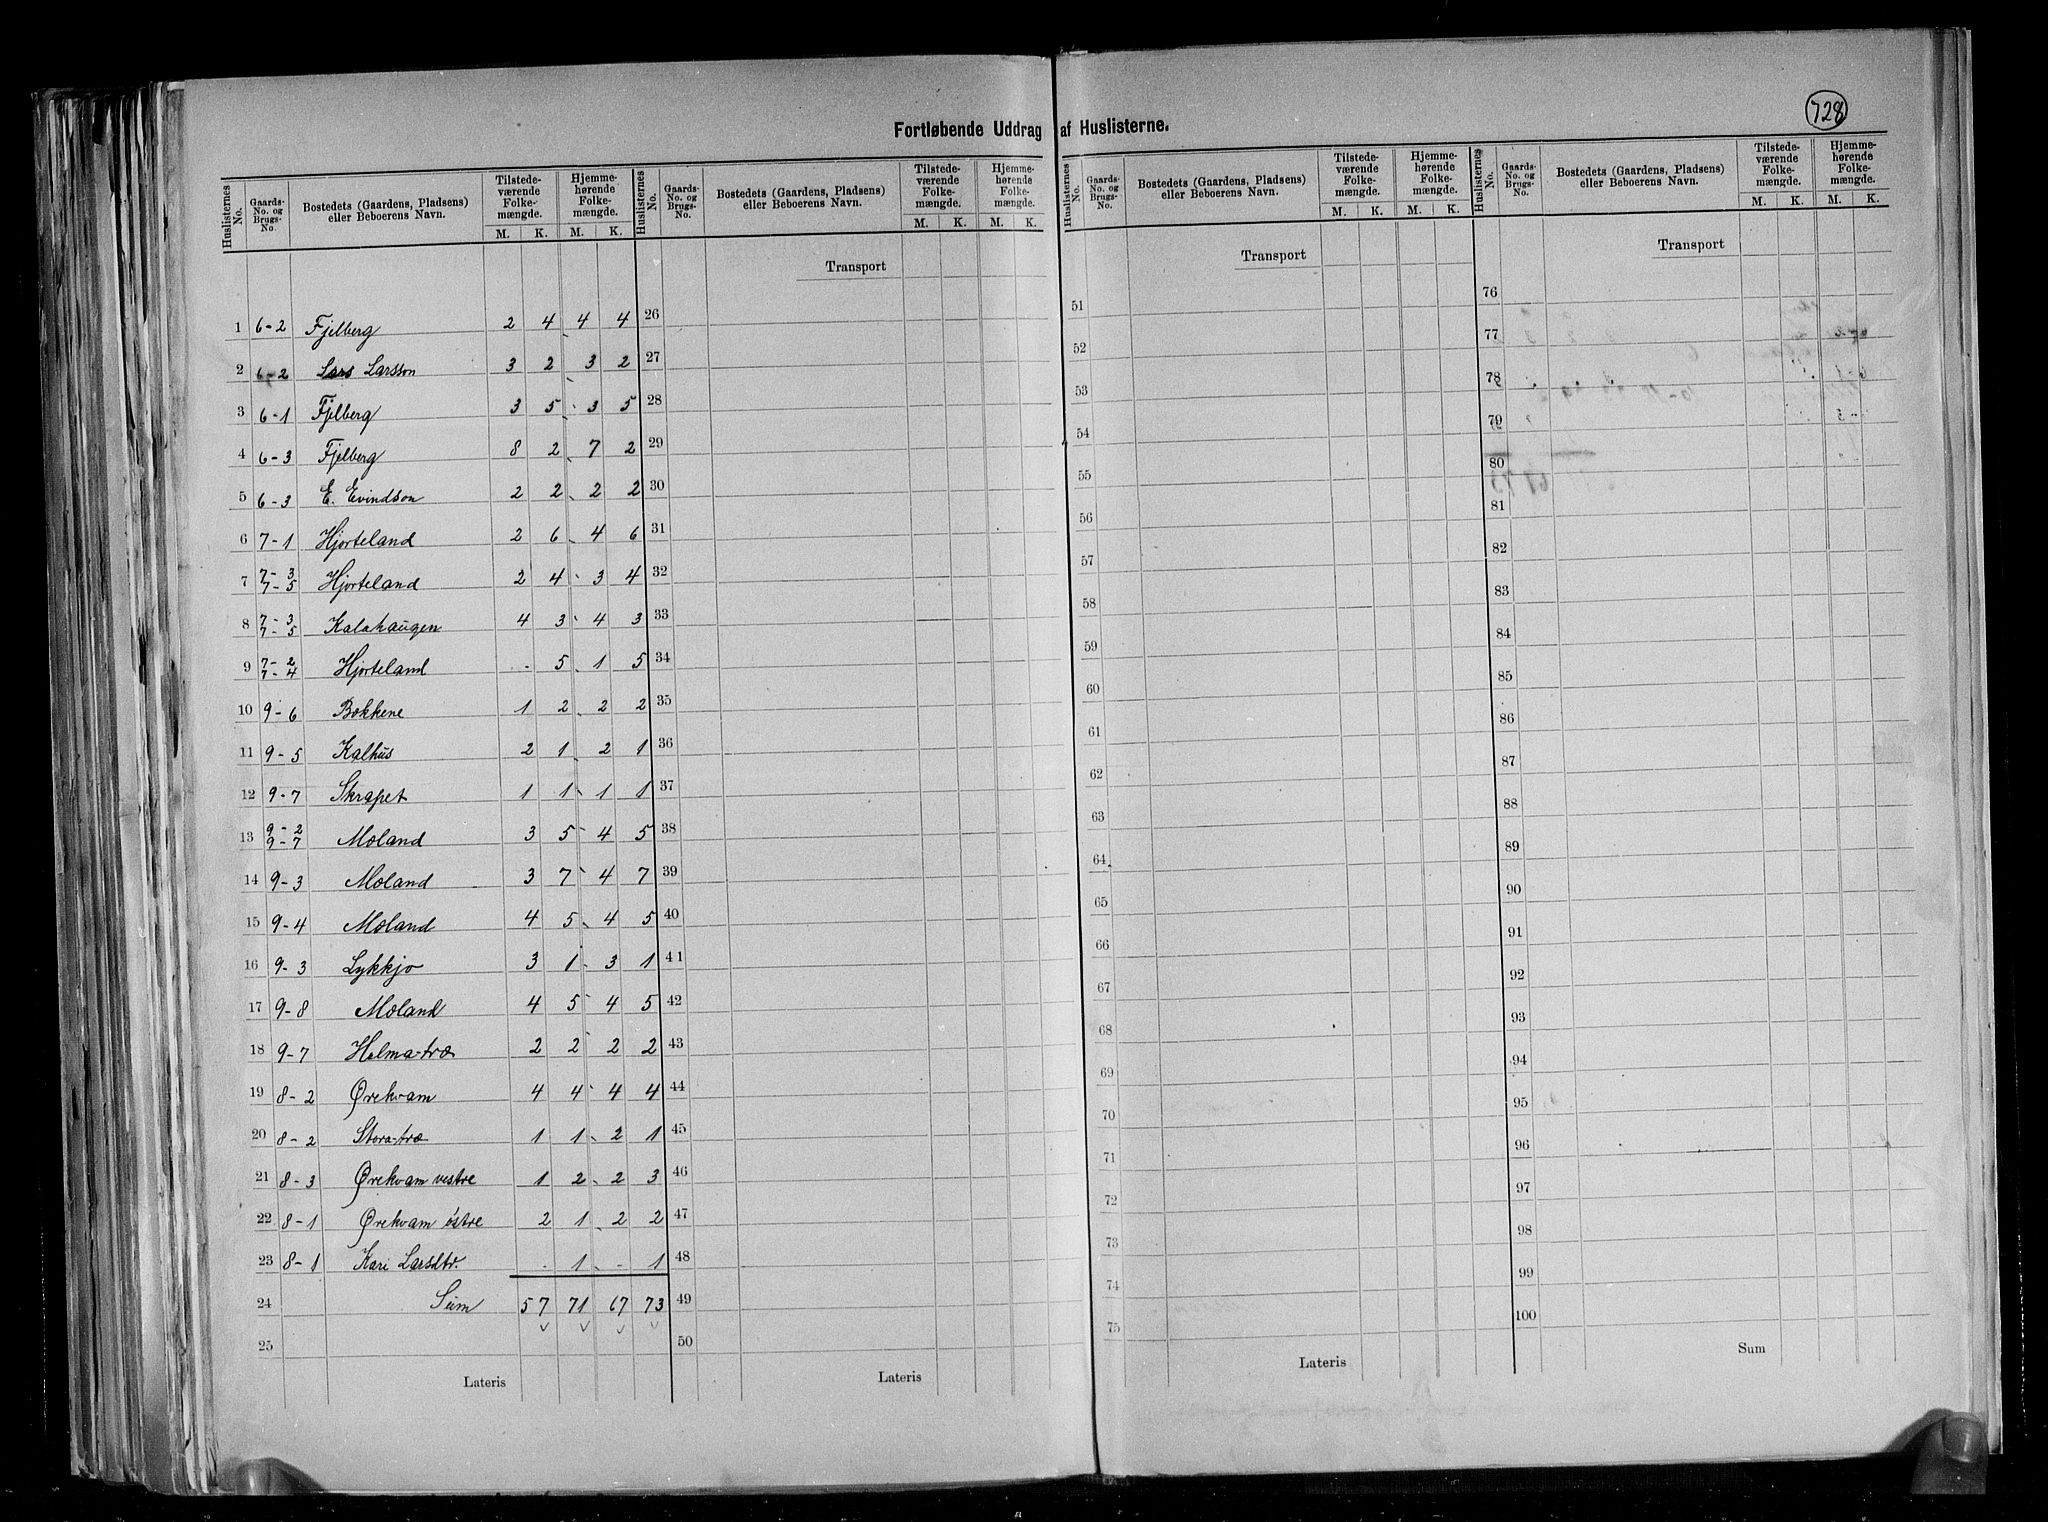 728
Fortløbende Uddrag af Huslisterne.
Huslisternes No. | Gaards-No. og Brugs-No. | Bostedets (Gaardens, Pladsens) eller Beboerens Navn. | Tilstedeværende Folkemængde. M. K. | Hjemmehørende Folkemængde. M. K.
1 6-2 Fjelberg 2 4 4 4
2 6-2 Lars Larsson 3 2 3 2
3 6-1 Fjelberg 3 5 3 5
4 6-3 Fjelberg 8 2 7 2
5 6-3 E. Evindson 2 2 2 2
6 7-1 Hjorteland 2 6 4 6
7 7-3 7-5 Hjorteland 2 4 3 4
8 7-3 7-5 Kalahaugen 4 3 4 3
9 7-2 7-4 Hjorteland - 5 1 5
10 9-6 Bakkene 1 2 2 2
11 9-5 Kalhus 2 1 2 1
12 9-7 Skrapet 1 1 1 1
13 9-2 9-7 Moland 3 5 4 5
14 9-3 Moland 3 7 4 7
15 9-4 Moland 4 5 4 5
16 9-3 Lykkjo 3 1 3 1
17 9-8 Moland 4 5 4 5
18 9-7 Helma-træ 2 2 2 2
19 8-2 Ørekvam 4 4 4 4
20 8-2 Stora-træ 1 1 2 1
21 8-3 Ørekvam vestre 1 2 2 3
22 8-1 Ørekvam östre 2 1 2 2
23 8-1 Kari Larsdtr. - 1 - 1
24 Sum 57 71 67 73
25
Lateris
Huslisternes No. | Gaards-No. og Brugs-No. | Bostedets (Gaardens, Pladsens) eller Beboerens Navn. | Tilstedeværende Folkemængde. M. K. | Hjemmehørende Folkemængde. M. K.
Transport
26
27
28
29
30
31
32
33
34
35
36
37
38
39
40
41
42
43
44
45
46
47
48
49
50
Lateris
Huslisternes No. | Gaards-No. og Brugs-No. | Bostedets (Gaardens, Pladsens) eller Beboerens Navn. | Tilstedeværende Folkemængde. M. K. | Hjemmehørende Folkemængde. M. K.
Transport
51
52
53
54
55
56
57
58
59
60
61
62
63
64
65
66
67
68
69
70
71
72
73
74
75
Lateris
Huslisternes No. | Gaards-No. og Brugs-No. | Bostedets (Gaardens, Pladsens) eller Beboerens Navn. | Tilstedeværende Folkemængde. M. K. | Hjemmehørende Folkemængde. M. K.
Transport
76
77
78
79
80
81
82
83
84
85
86
87
88
89
90
91
92
93
94
95
96
97
98
99
100
Sum